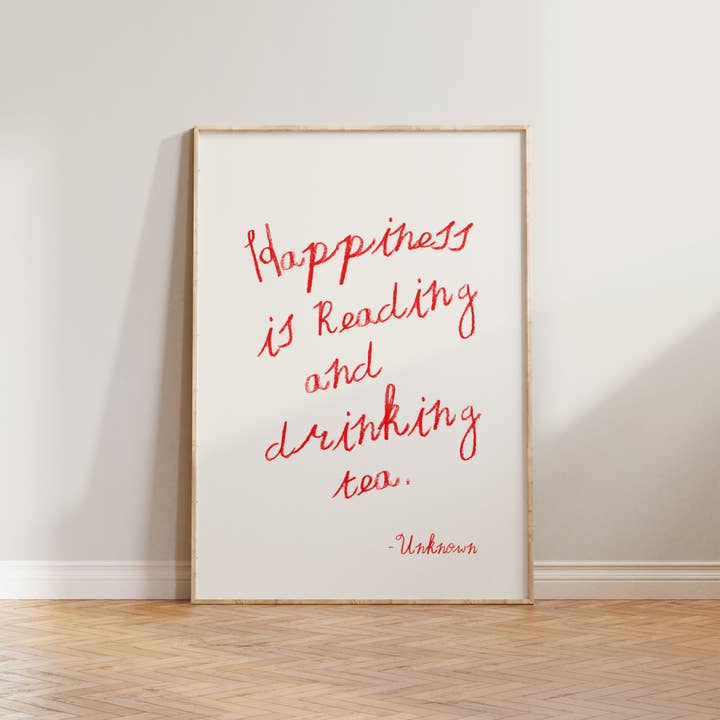 Happiness
is Reading
and
drinking
tea.
-Unknown